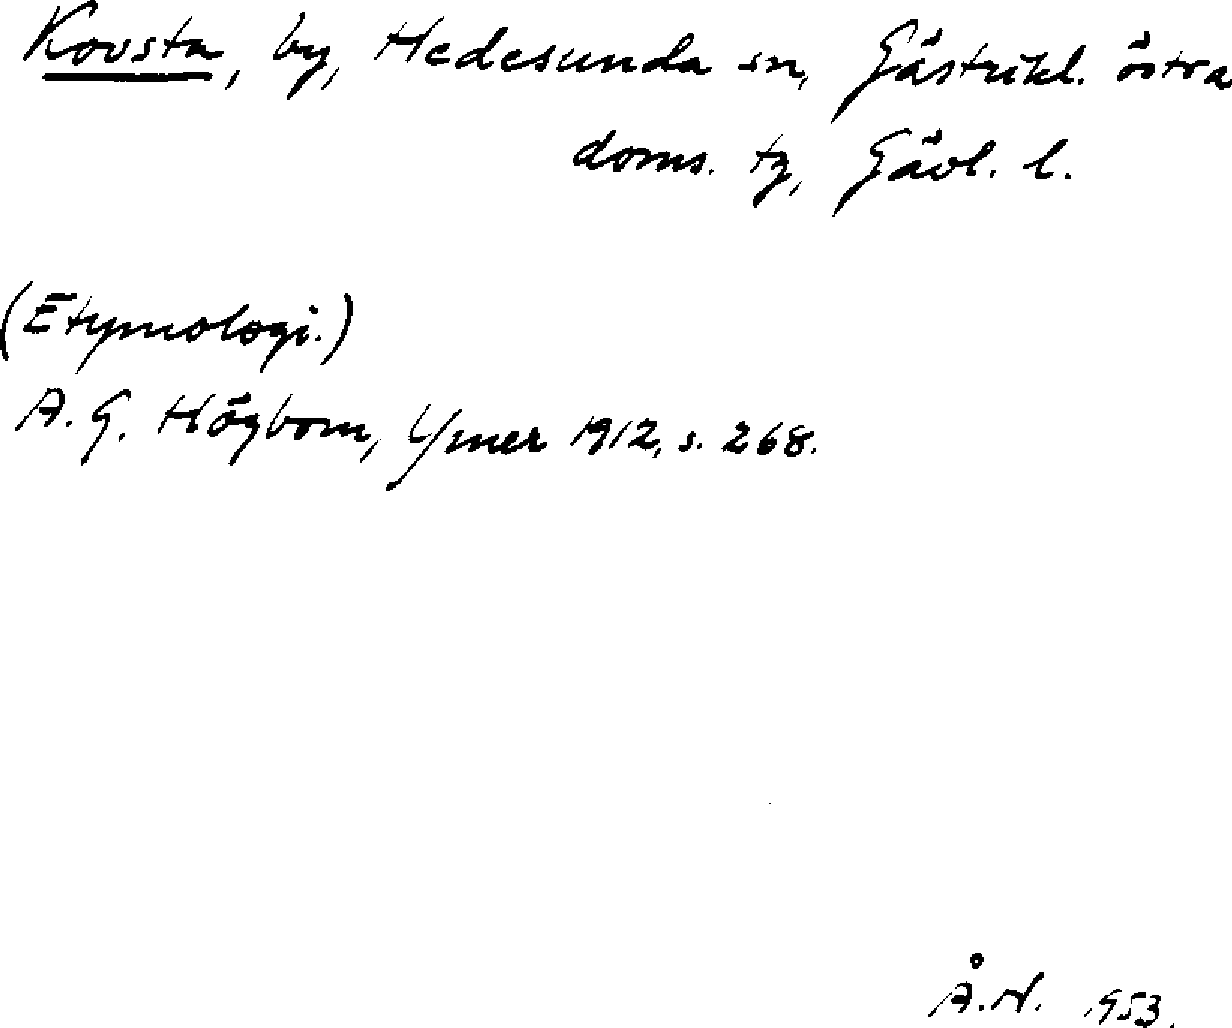 Kovsta, by, Hedesunda sn, Gästrikl. östra
doms. tg, Gävl. l.
(Etymologi.)
A. G. Högbom, Ymer 1912, s. 268.
Å.N. 1953.